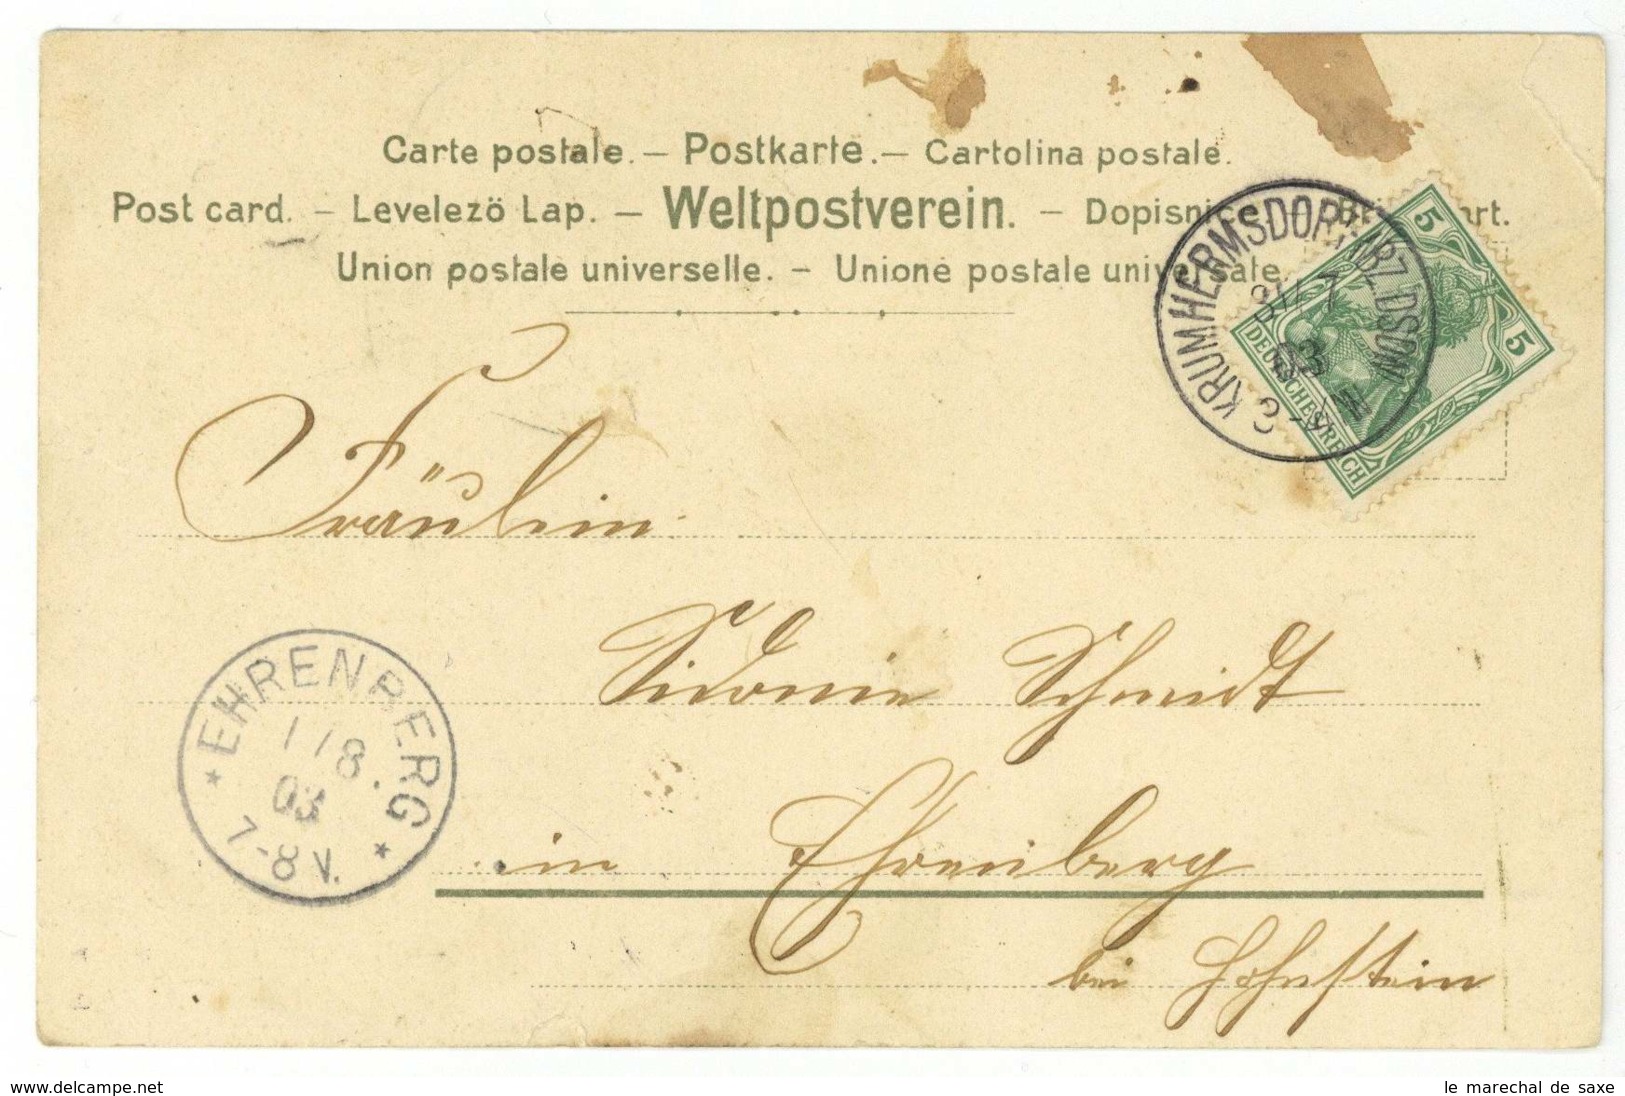 Carte postale. – Postkarte. – Cartolina postale.
Post card. – Levelezö Lap. – Weltpostverein. –
Union postale universelle. – Unione postale universale.
KRUMHERMSDORF
03
5
5
DEUTSCHES REICH
Fräulein
Sidonie Schmidt
EHRENBERG
1/8.
03
7-8 V.
in Ehrenberg
bei Hohnstein
www.delcampe.net
le marechal de saxe